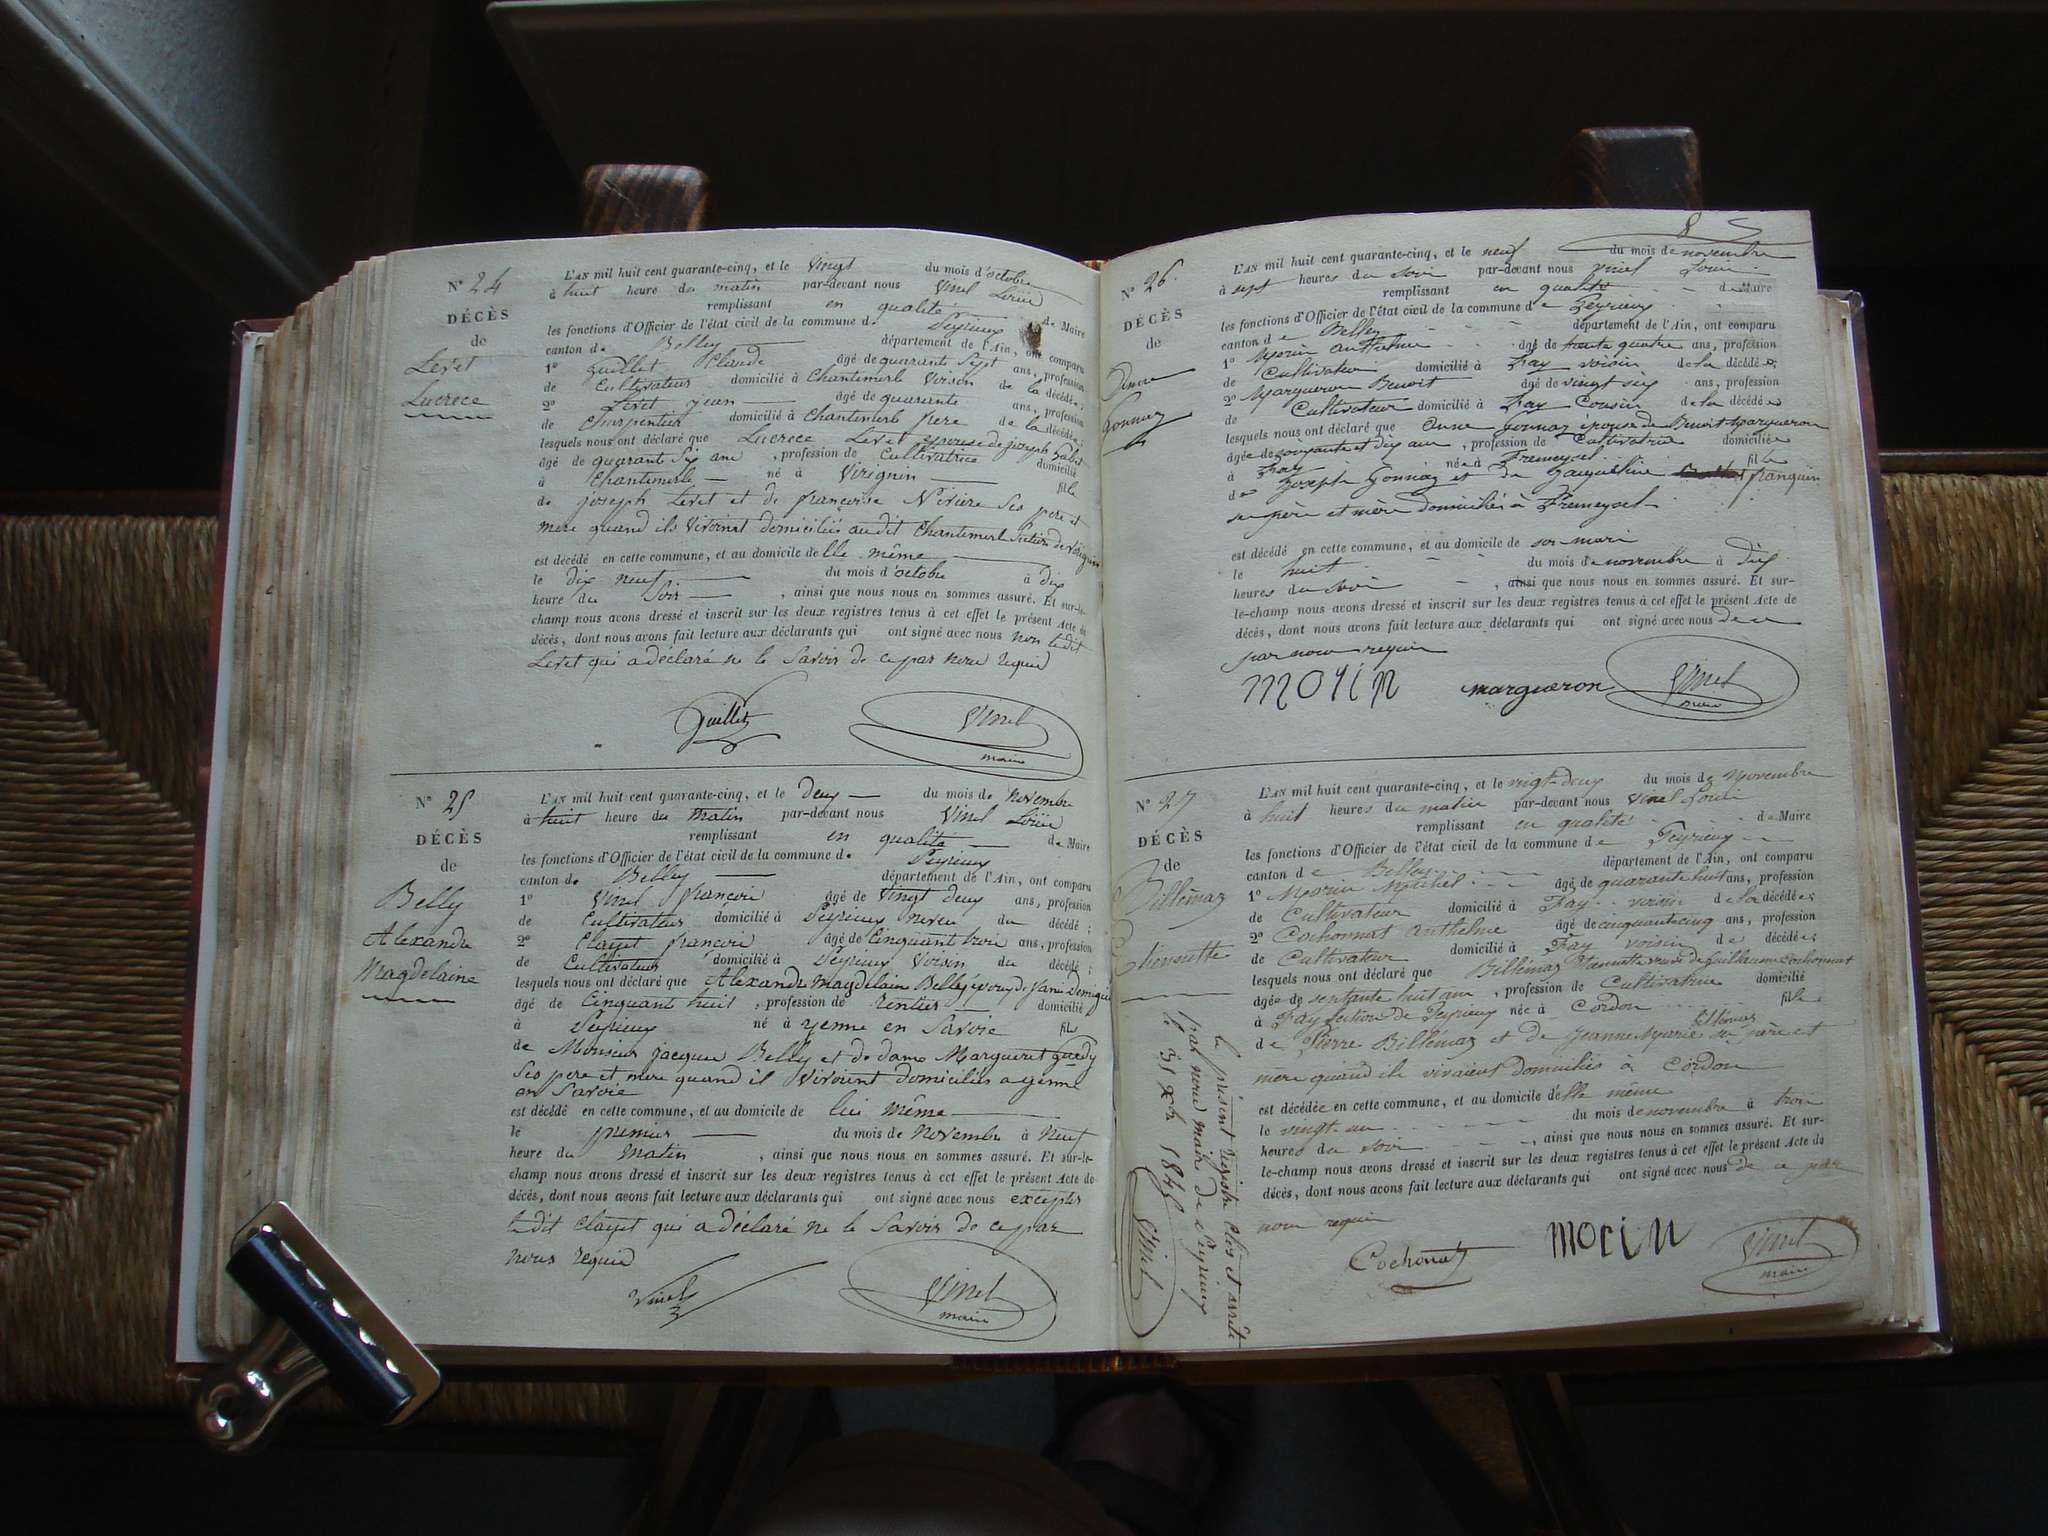 N° 24
DÉCÈS
de
Levet
Lucrece
L'AN mil huit cent quarante-cinq, et le vingt du mois d'octobre
à huit heure du matin par-devant nous Vinel Loüis
remplissant en qualité de Maire
les fonctions d'Officier de l'état civil de la commune de Peyrieux
canton de Belley département de l'Ain, ont comparu
1° Guillet Claude âgé de quarante Sept ans, profession
de Cultivateur domicilié à Chantemerle Voisin de la décédée;
2° Levet jean âgé de quarante ans, profession
de Charpentier domicilié à Chantemerle frere de la décédée;
lesquels nous ont déclaré que Lucrece Levet epouse de joseph
âgé de quarant Six ans, profession de Cultivatrice domicilié
à Chantemerle né à Virignin fille
de joseph Levet et de françoise Ses pere et
mere quand ils Vivoint domiciliés audit Chantemerle Section de Virignin
est décédé en cette commune, et au domicile de lle même
le dix neuf du mois d'octobre à dix
heure du Soir, ainsi que nous nous en sommes assuré. Et sur-le-
champ nous avons dressé et inscrit sur les deux registres tenus à cet effet le présent Acte de
décès, dont nous avons fait lecture aux déclarants qui ont signé avec nous non ledit
Levet qui a déclaré ne le Savoir de ce par nous requis
Guillet Vinel
maire
N° 25
DÉCÈS
de
Belly
Alexandre
Magdelaine
L'AN mil huit cent quarante-cinq, et le deux du mois de Novembre
à huit heure du Matin par-devant nous Vinel Loüis
remplissant en qualité de Maire
les fonctions d'Officier de l'état civil de la commune de Peyrieux
canton de Belley département de l'Ain, ont comparu
1° Vinel françois âgé de Vingt deux ans, profession
de Cultivateur domicilié à Peyrieux neveu du décédé;
2° Clayet françois âgé de Cinquant trois ans, profession
de Cultivateur domicilié à Peyrieux Voisin du décédé;
lesquels nous ont déclaré que Alexandre Magdelain Belly
âgé de Cinquant huit, profession de rentier domicilié
à Peyrieux né à yenne en Savoie fils
de Monsieur jacques Belly et de dame Margueret
Ses pere et mere quand il Vivoient domiciliés a yenne
en Savoie
est décédé en cette commune, et au domicile de lui même
le premier du mois de Novembre à Neuf
heure du Matin, ainsi que nous nous en sommes assuré. Et sur-le-
champ nous avons dressé et inscrit sur les deux registres tenus à cet effet le présent Acte de
décès, dont nous avons fait lecture aux déclarants qui ont signé avec nous excepter
ledit Clayet qui a déclaré ne le Savoir de ce par
nous requis
Vinel Vinel
maire
8
N° 26
DÉCÈS
de
Anne
Gonnaz
L'AN mil huit cent quarante-cinq, et le neuf du mois de novembre
à sept heures du soir par-devant nous Vinel Louis
remplissant en qualité de Maire
les fonctions d'Officier de l'état civil de la commune de Peyrieux
canton de Belley département de l'Ain, ont comparu
1° Morin Anthelme âgé de trente quatre ans, profession
de Cultivateur domicilié à Fay voisin de la décédée;
2° Margueron Benoit âgé de vingt six ans, profession
de Cultivateur domicilié à Fay Cousin de la décédée
lesquels nous ont déclaré que Anne Gonnaz épouse de Benoit Margueron
âgée de soixante et dix ans, profession de Cultivatrice domiciliée
à Fay née à Premeysel fille
de Joseph Gonnaz et de Jacqueline franquin
ses père et mère domiciliés à Premeysel
est décédé en cette commune, et au domicile de son mari
le huit du mois de novembre à dix
heures du soir, ainsi que nous nous en sommes assuré. Et sur-
le-champ nous avons dressé et inscrit sur les deux registres tenus à cet effet le présent Acte de
décès, dont nous avons fait lecture aux déclarants qui ont signé avec nous de ce
par nous requis
morin margueron Vinel
maire
N° 27
DÉCÈS
de
Billémaz
L'AN mil huit cent quarante-cinq, et le vingt-deux du mois de Novembre
à huit heures du matin par-devant nous Vinel Louis
remplissant en qualité de Maire
les fonctions d'Officier de l'état civil de la commune de Peyrieux
canton de Belley département de l'Ain, ont comparu
1° Morin Michel âgé de quarante huit ans, profession
de Cultivateur domicilié à Fay voisin de la décédée;
2° Cochonnat Anthelme âgé de cinquante cinq ans, profession
de Cultivateur domicilié à Fay voisin de décédée;
lesquels nous ont déclaré que Billémaz veuve de Guillaume Cochonnat
âgée de septante huit ans, profession de Cultivatrice domicilié
à Fay section de Peyrieux née à Cordon fille
de Pierre Billémaz et de Jeanne Marie Billémaz ses père et
mere quand ils vivaient domiciliés à Cordon
est décédée en cette commune, et au domicile d'elle même
le vingt un du mois de novembre à trois
heures du soir, ainsi que nous nous en sommes assuré. Et sur-
le-champ nous avons dressé et inscrit sur les deux registres tenus à cet effet le présent Acte de
décès, dont nous avons fait lecture aux déclarants qui ont signé avec nous de ce par
nous requis
Cochonat morin Vinel
maire
Le présent registre Clos et arrêté
par nous maire de Peyrieux
le 31 Xbre 1845
Vinel